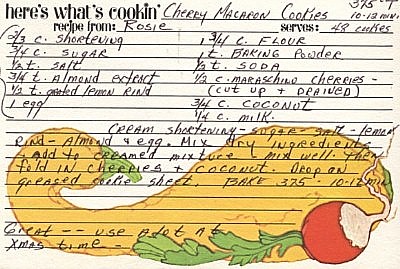 here's what's cookin' Cherry Macaron Cookies 375° T
10-12 min.
recipe from: Rosie serves: 48 cookies
2/3 c. shortening 1 3/4 c. flour
3/4 c. sugar 1 t. baking powder
1/2 t. salt 1/2 t. soda
3/4 t. almond extract 1/2 c. maraschino cherries -
1/2 t. grated lemon rind (cut up + drained)
1 egg 3/4 c. coconut
1/4 c. milk.
Cream shortening - sugar - salt - lemon
rind - almond & egg. Mix dry ingredients
+ add to creamed mixture - mix well. Then
fold in cherries + coconut. Drop on
greased cookie sheet. Bake 375° 10-12 min
Great -- use a lot at
Xmas time -